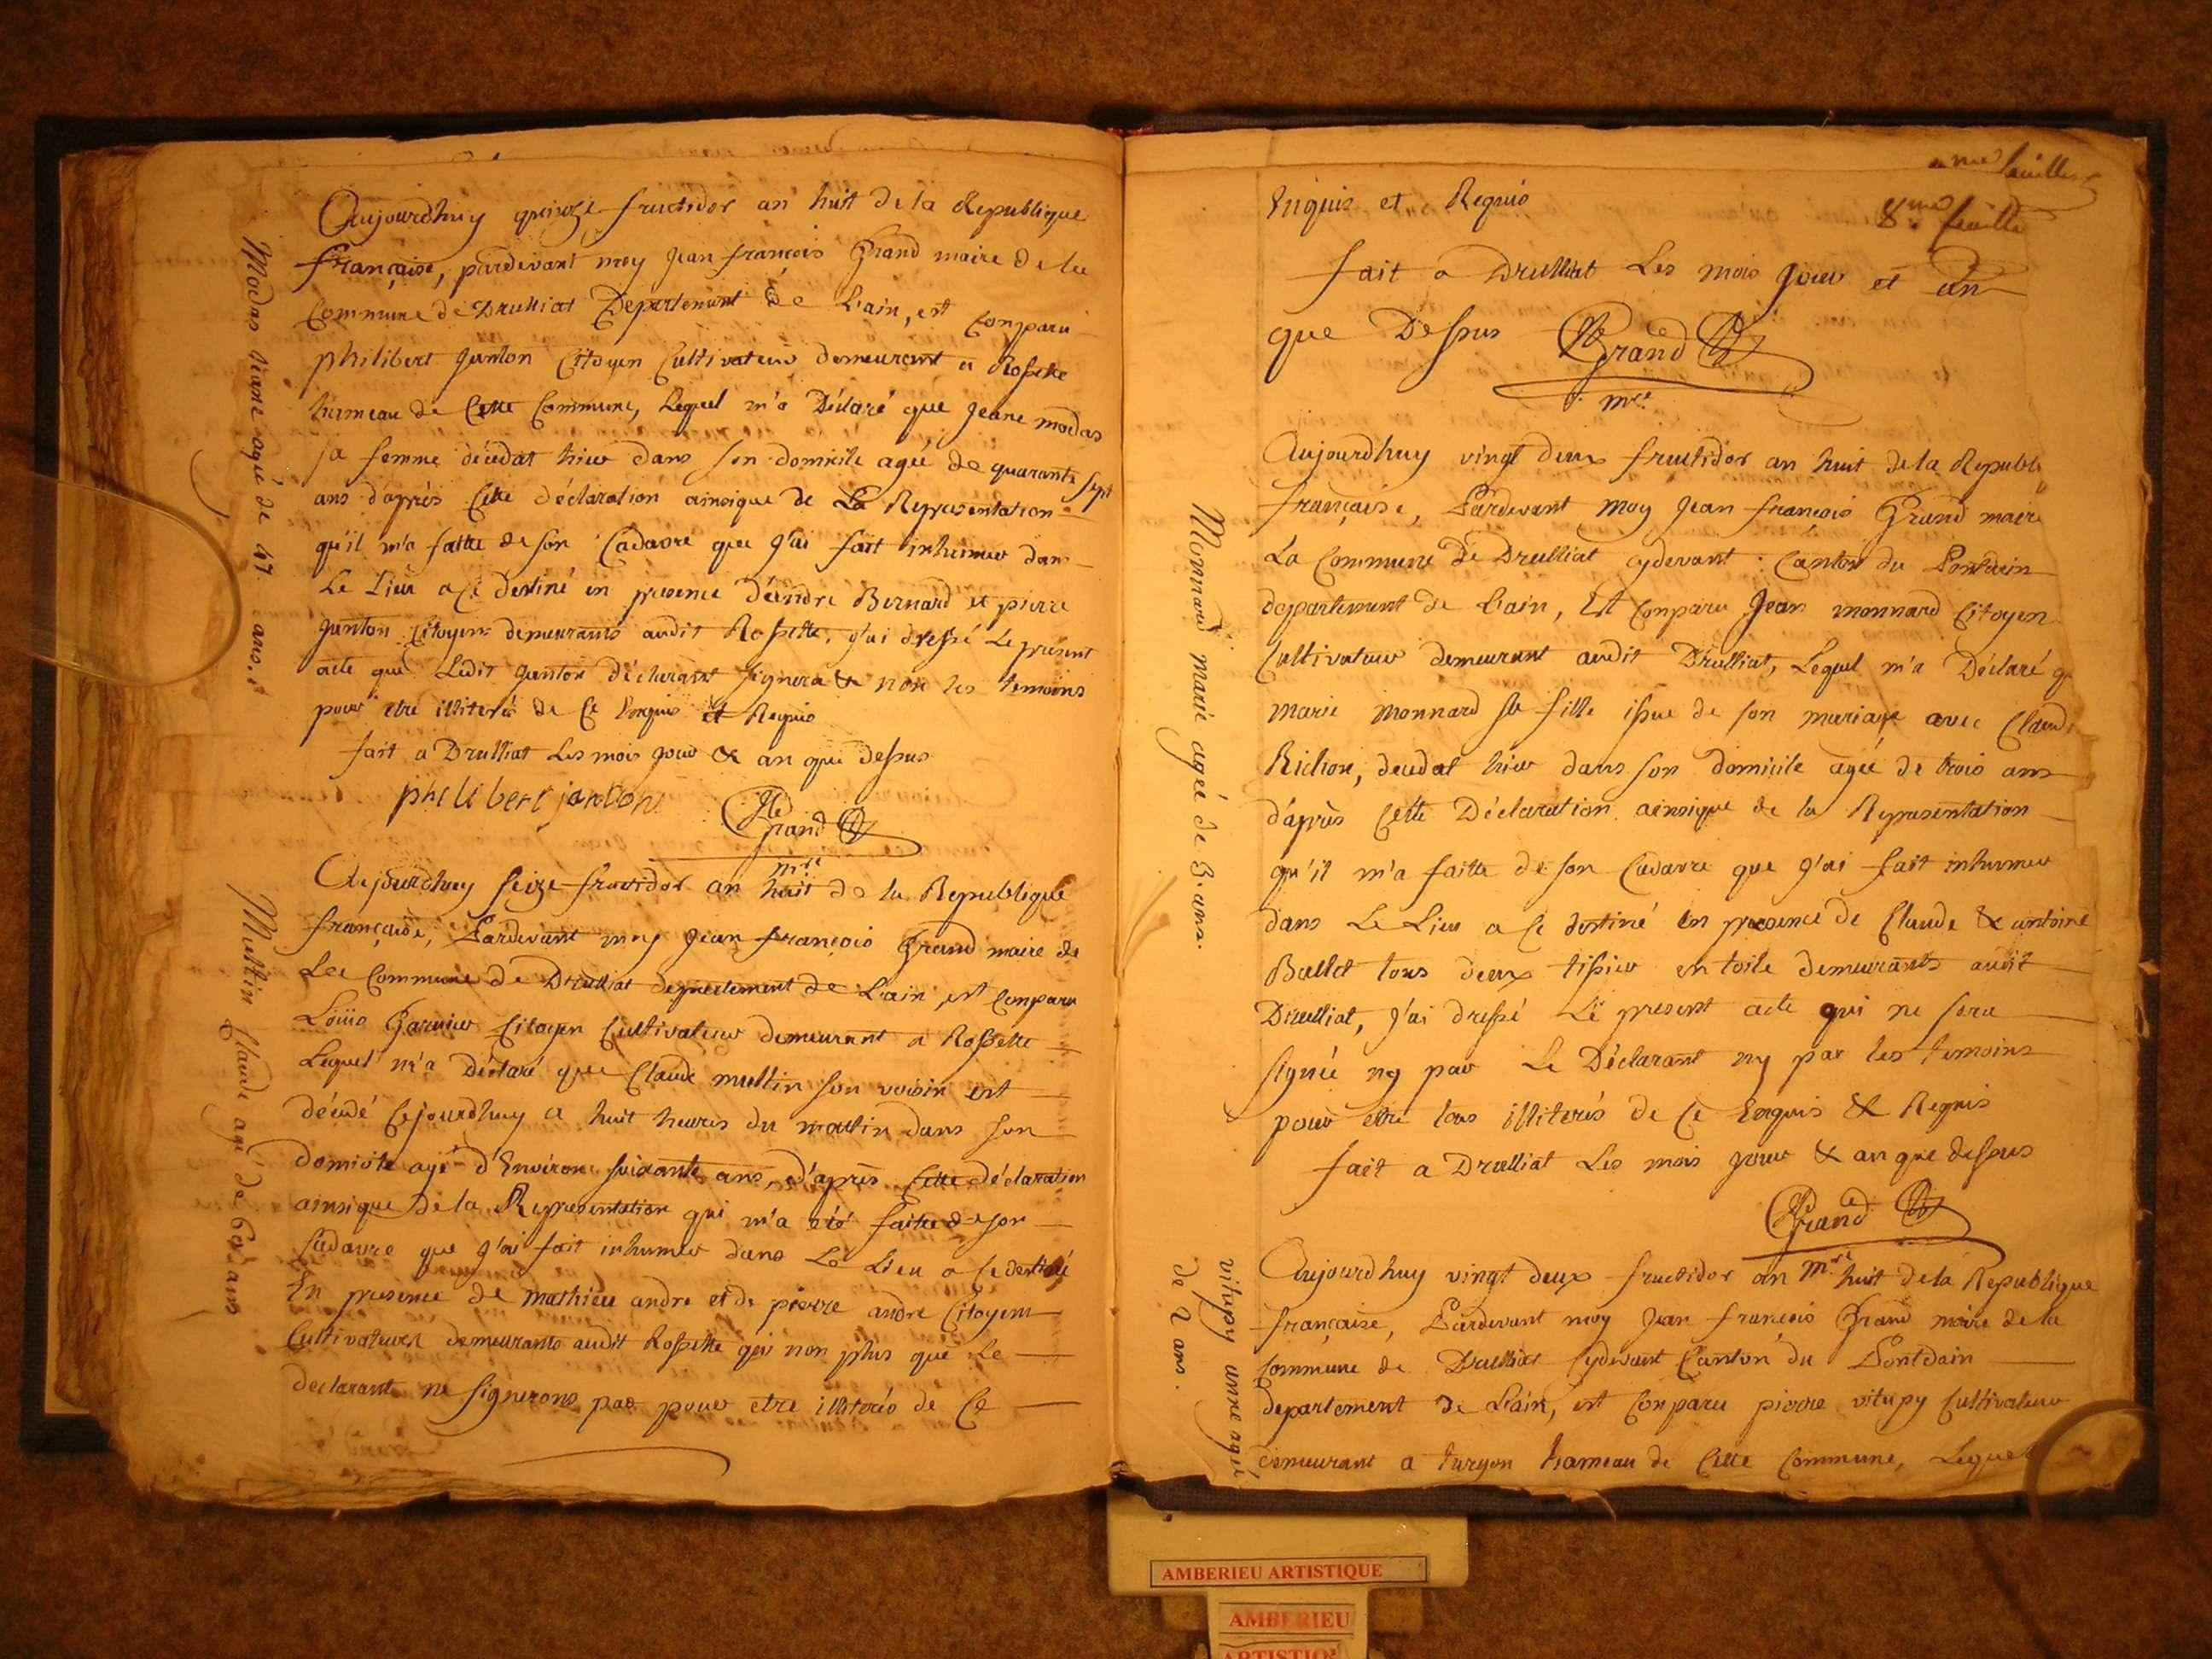 Modas Jeane agée de 47 ans.
Aujourdhuy quinze fructidor an huit de la Republique
française, pardevant moy Jean françois Grand maire de la
Commune de Druilliat Departement de L'ain, est Conparu
philibert Janton Citoyen Cultivateur demeurant a Rossette
hameau de Cette Commune, Lequel m'a Déclaré que Jeane modas
sa femme décédat hier dans son domicile agée de quarante sept
ans d'après Cette déclaration ainsique de La Representation
qu'il m'a faitte de son Cadavre que j'ai fait inhumer dans
Le Lieu a Ce destiné en presence d'andre Bernard et pierre
Janton Citoyens demeurants audit Rossette, j'ai dressé Le present
acte que Ledit Janton déclarant signera & non les temoins
pour etre illiterés de Ce Enquis et Requis
fait a Druilliat Les mois jour & an que dessus
philibert janton
Grand
mre
Muttin Claude agé de 60 ans
Aujourdhuy seize fructidor an huit de la Republique
française, Pardevant moy Jean françois Grand maire de
La Commune de Druilliat departement de L'ain, est Conparu
Loüis Garnier Citoyen Cultivateur demeurant a Rossette
Lequel m'a Déclaré que Claude muttin son voisin est
décédé Cejourdhuy a huit heures du matin dans son
domicile agé d'Environ soixante ans, d'après Cette déclaration
ainsique de la Representation qui m'a été faitte de son
Cadavre que j'ai fait inhumer dans Le Lieu a Ce destiné
En presence de mathieu andre et de pierre andre Citoyens
Cultivateurs demeurants audit Rossette qui non plus que Le
declarant ne signerons pas pour etre illiterés de Ce
8me feuille
Enquis et Requis
fait a Druilliat Les mois jour et an
que Dessus Grand
mre
Monnard marie agée de 3 ans.
Aujourdhuy vingt deux fructidor an huit de la Republi
française, Pardevant moy Jean françois Grand maire
La Commune de Druilliat cydevant Canton du Pontdain
departement de L'ain, Est Conparu Jean monnard Citoyen
Cultivateur demeurant audit Druilliat, Lequel m'a Déclaré q
marie monnard sa fille issue de son mariage avec Claud
Richon, decedat hier dans son domicile agée de trois ans
d'après Cette Déclaration ainsique de la Representation
qu'il m'a faitte de son Cadavre que j'ai fait inhumer
dans Le Lieu a Ce destiné En presence de Claude & antoine
Ballet tous deux tissier en toile demeurants audit
Druilliat, j'ai dressé Le present acte qui ne sera
signé ny par Le Déclarant ny par les temoins
pour etre tous illiterés de Ce Enquis & Requis
fait a Druilliat Les mois jour & an que dessus
Grand
mre
vitupy anne agée
de 2 ans.
Aujourdhuy vingt deux fructidor an huit de la Republique
française, Pardevant moy Jean françois Grand maire de la
Commune de Druilliat Cydevant Canton du Pontdain
departement de L'ain, est Conparu pierre vitupy Cultivateur
demeurant a turgon hameau de Cette Commune, Lequel
AMBERIEU ARTISTIQUE
AMBERIEU
ARTISTIQ